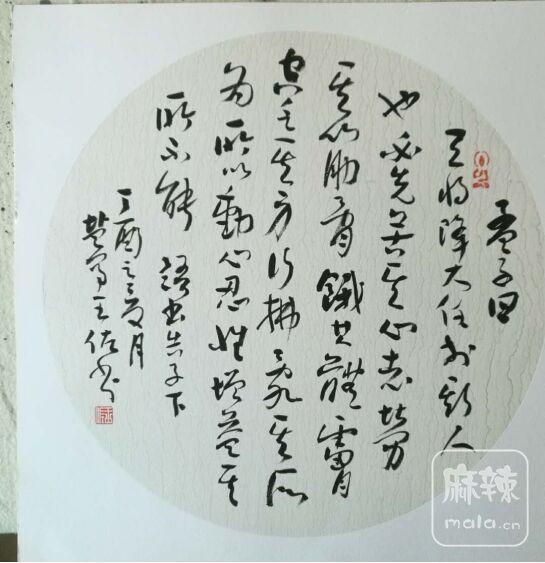 孟子曰
天将降大任於斯人
也必先苦其心志劳
其筋骨餓其體膚
空乏其身行拂乱其所
为所以動心忍性增益其
所不能 語出告子下
丁酉之夏月
王佐书
麻辣
mala.cn